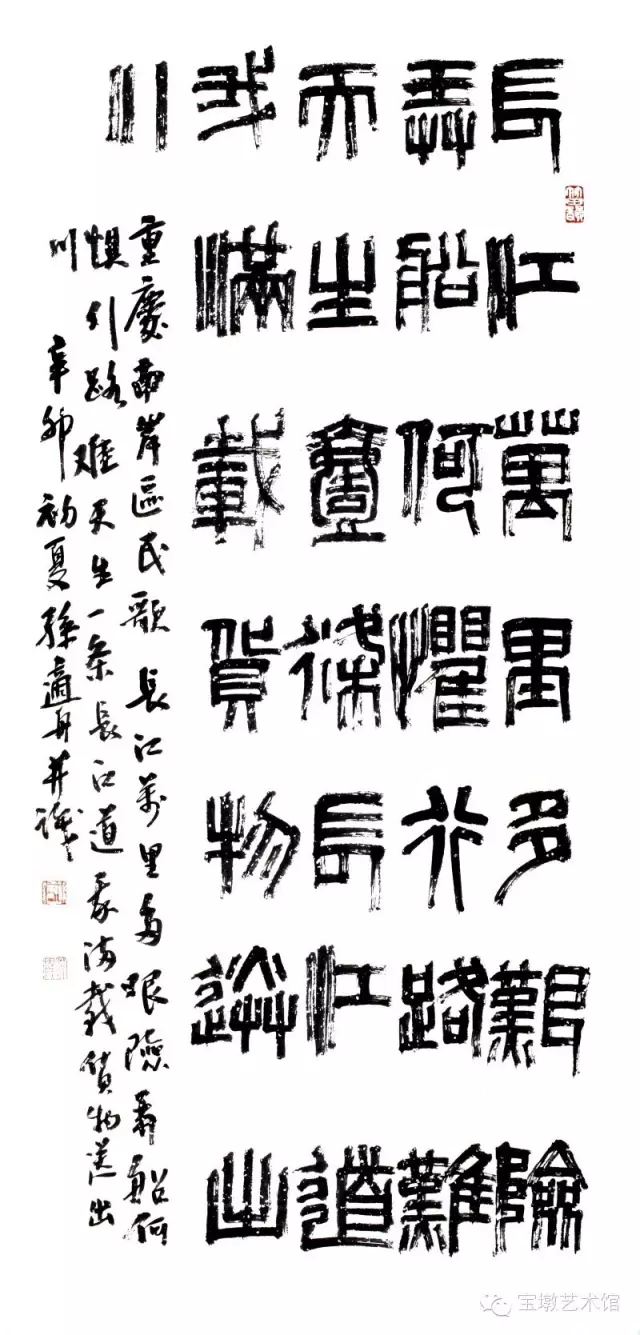 長江萬里多艱險
弄船何懼行路難
天生壹條長江道
我滿載貨物送出
川
重慶南岸區民歌 長江萬里多艰險弄船何
惧行路难天生一条長江道我满載貨物送出
川 辛卯初夏孫適并識
宝墩艺术馆